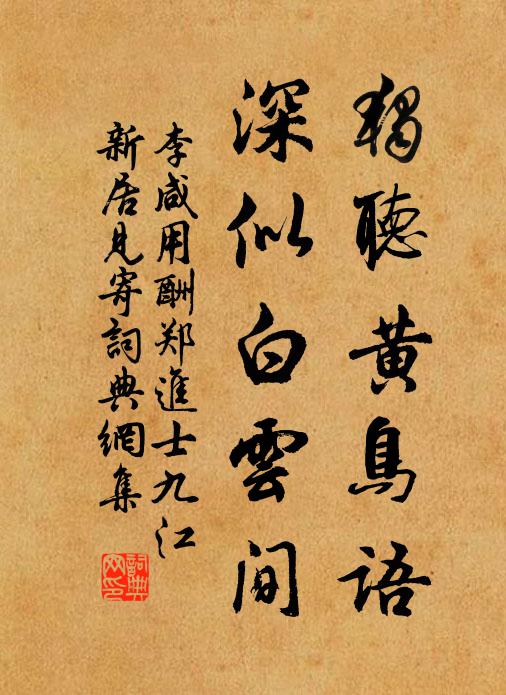 獨聽黄鳥語
深似白雲間
李咸用酬郑進士九江
新居見寄詞典網集
詞典
网印